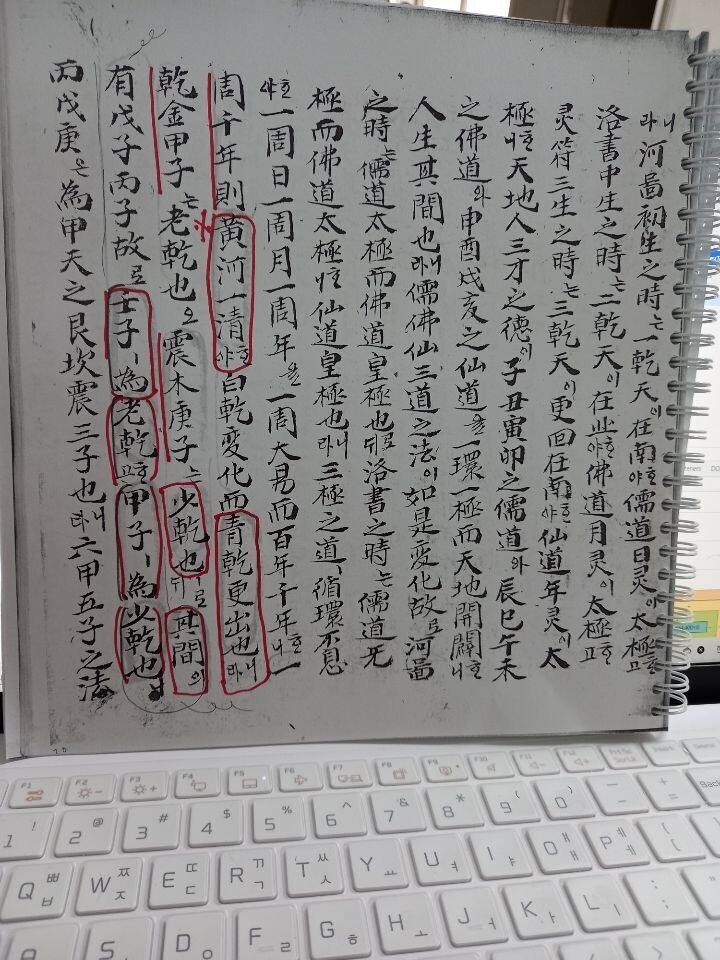 라니 河圖初生之時는 一乾天이 在南야 儒道日灵이 太極고
洛書中生之時는 二乾天이 在北야 佛道月灵이 太極고
灵符三生之時는 三乾天이 更回在南야 仙道年灵이 太
極니 天地人三才之德이 子丑寅卯之儒道와 辰巳午未
之佛道와 申酉戌亥之仙道을 一環一極而天地開闢니
人生其間也라니 儒佛仙三道之法이 如是變化故로 河圖
之時는 儒道太極而佛道皇極也뒤로 洛書之時는 儒道无
極而佛道太極 仙道皇極也라니 三極之道 循環不息
야 一周日一周月一周年을 一周大易而百年千年나 一
周千年則黃河一清야 白乾變化而青乾更出也라니
乾金甲子는 老乾也오 震木庚子는 少乾也뒤로 其間의
有戊子丙子故로 壬子ㅣ 為老乾고 甲子ㅣ 為少乾也
丙戊庚은 為甲天之艮坎震三子也라니 六甲五子之法
F1 F2 F3 F4 F5 F6 F7 F8 F9 F10 F11 F12 PrtSc Insert Delete
1 ! 2 @ 3 # 4 $ 5 % 6 ^ 7 & 8 * 9 ( 0 ) - + = Back
Q ㅃ ㅂ W ㅉ ㅈ E ㄸ ㄷ R ㄲ ㄱ T ㅆ ㅅ Y ㅛ U ㅕ I ㅑ O ㅒ ㅐ P ㅖ ㅔ { [
A S D ㅇ F ㄹ G ㅎ H ㅗ J ㅓ K ㅏ L ㅣ : ;